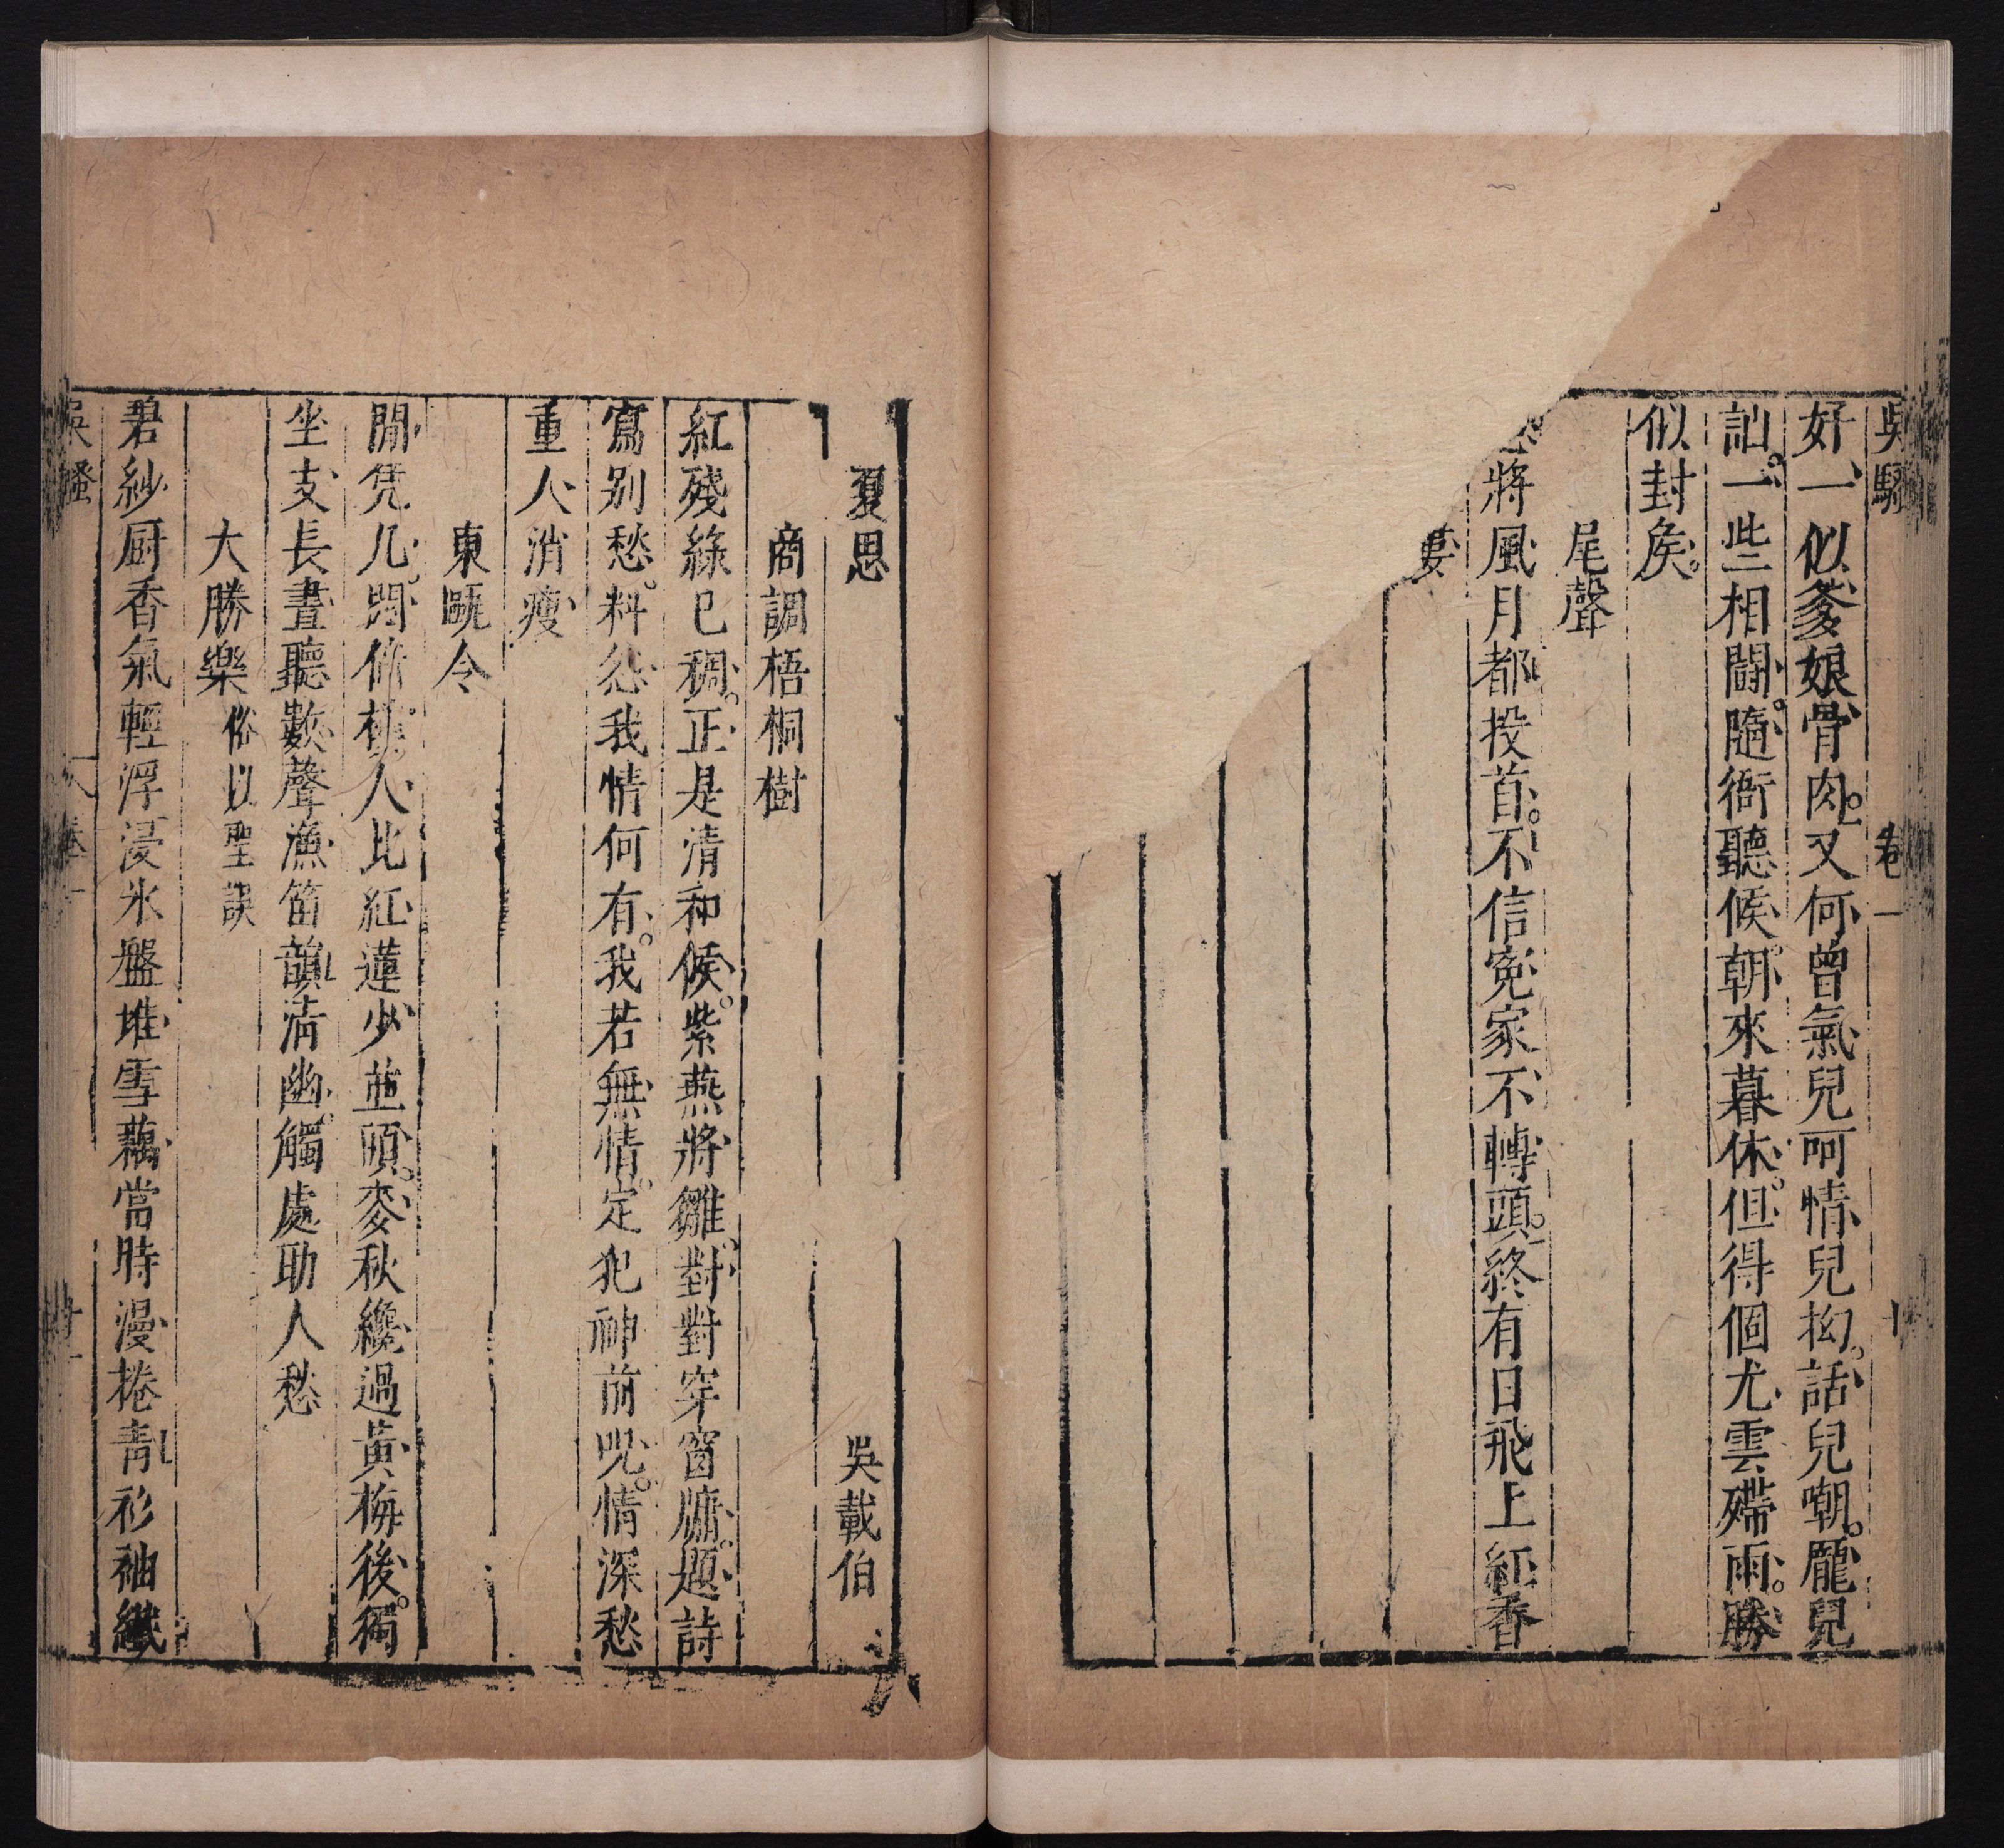 吳騷 卷一 十
好一似爹娘骨肉又何曾氣兒呵情兒拗話兒嘲龐兒
訕一些相鬭隨衙聽候朝來暮休但得個尤雲殢雨勝
似封矦
尾聲
將風月都投首不信寃家不轉頭終有日飛上紅香
夏思 吳載伯
商調梧桐樹
紅殘綠已稠正是清和候紫燕將雛對對穿窗牖題詩
寫別愁料怨我情何有我若無情定犯神前呪情深愁
重人消瘦
東甌令
閒凭几悶倚樓人比紅蓮少並頭麥秋纔過黃梅後獨
坐支長晝聽數聲漁笛韻清幽觸處助人愁
大勝樂 俗以聖誤
碧紗厨香氣輕浮浸氷盤堆雪藕當時漫捲青衫袖纖
吳騷 卷一 十一